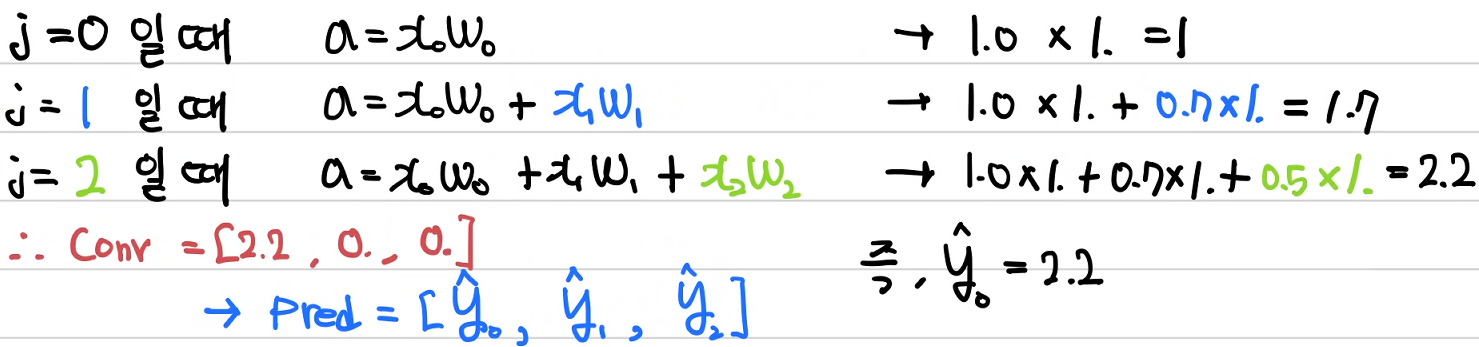 j=0 일 때 a=x₀w₀ → 1.0 × 1. =1
j=1 일 때 a=x₀w₀+x₁w₁ → 1.0 × 1. + 0.7×1. = 1.7
j=2 일 때 a=x₀w₀+x₁w₁+x₂w₂ → 1.0×1.+0.7×1.+0.5×1.=2.2
∴ Conv =[2.2, 0., 0.]
즉, ŷ₀=2.2
→ Pred = [ŷ₀, ŷ₁, ŷ₂]